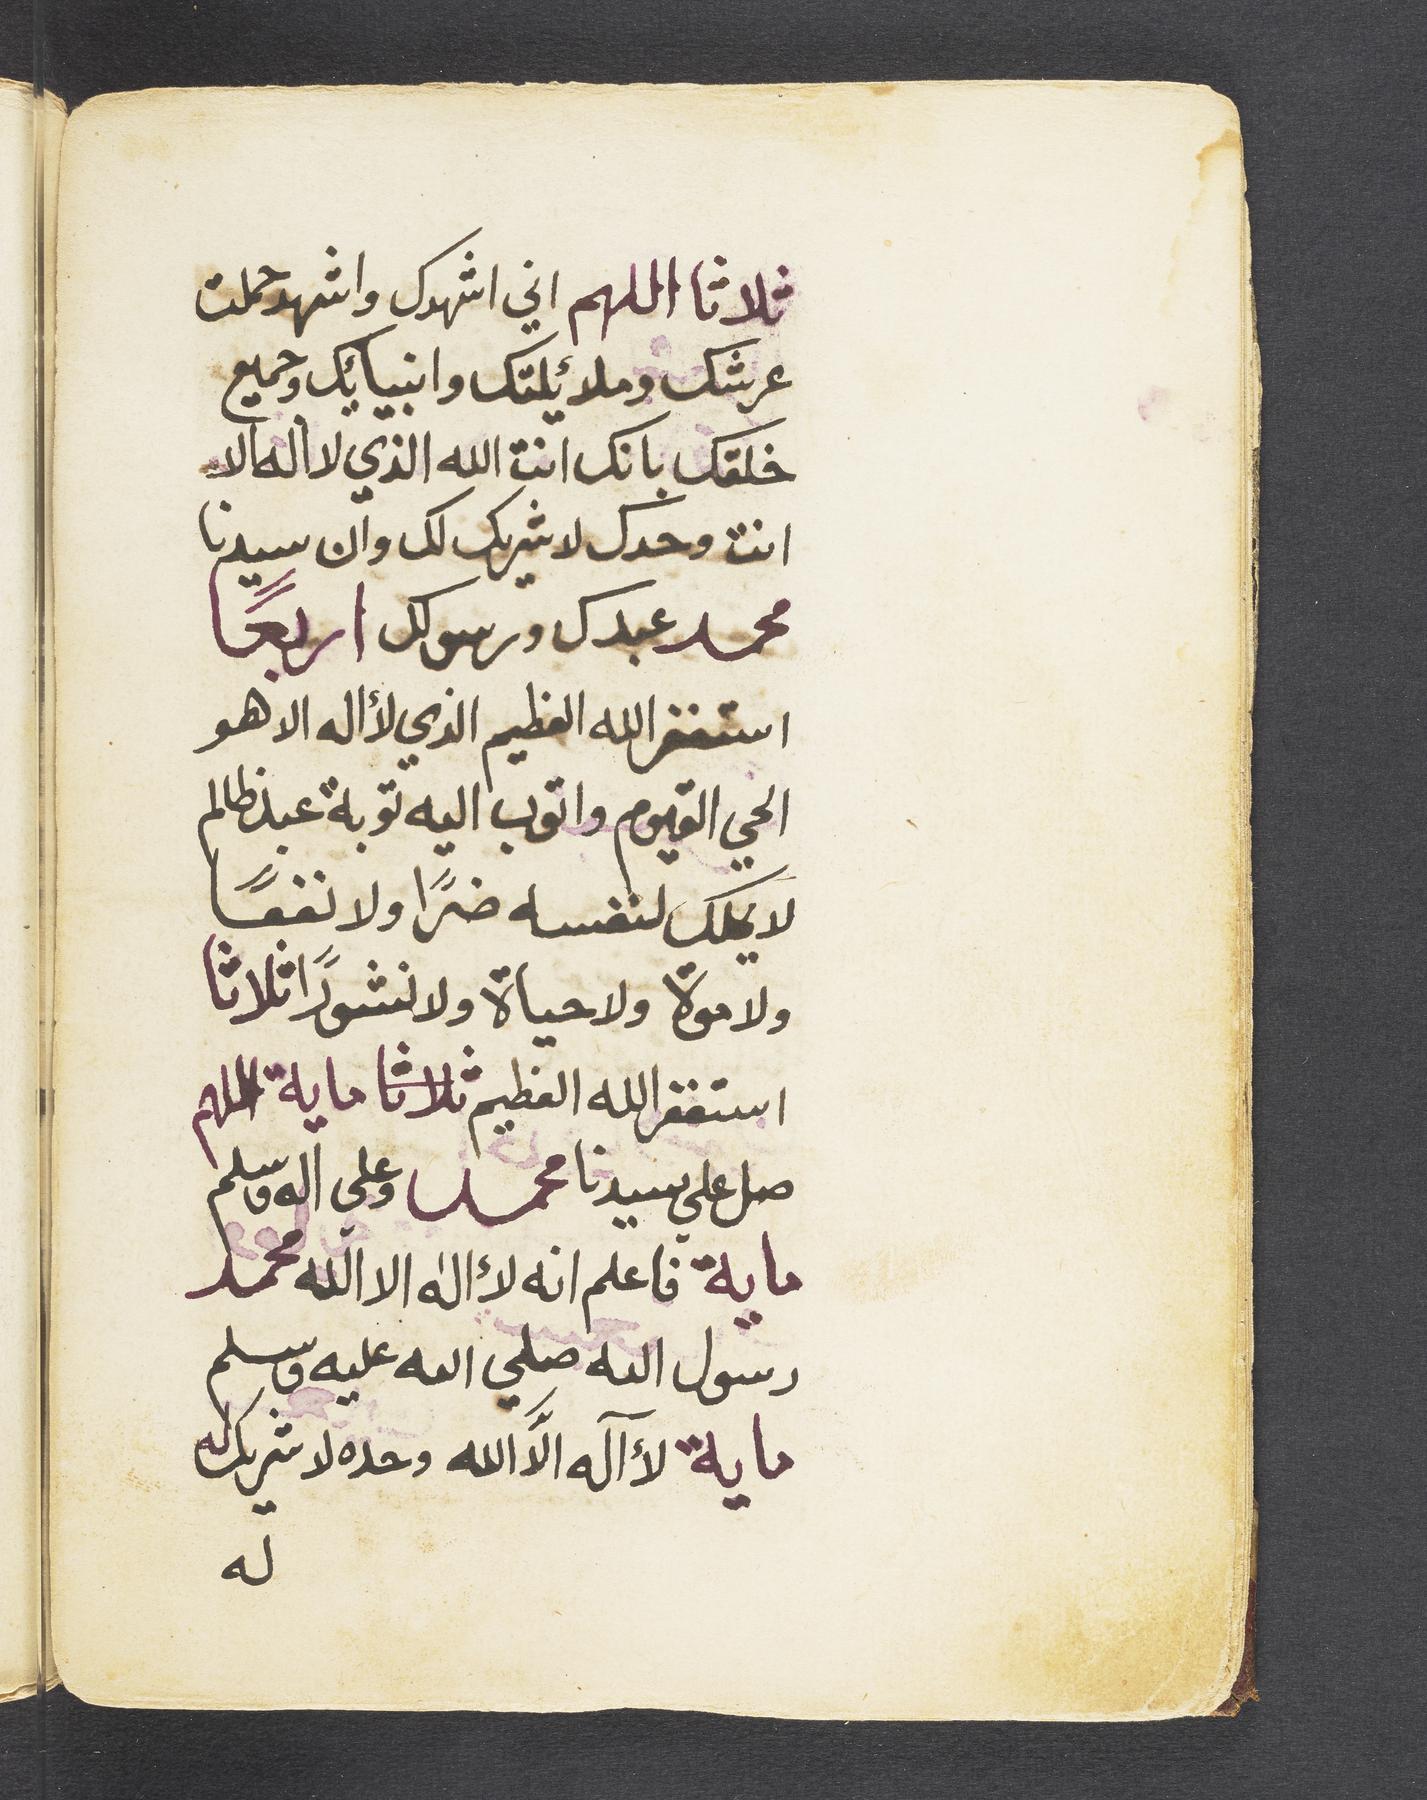 ثلاثا اللهم اني اشهدك واشهد حملت
عرشك وملائيكتك وانبيائك وجميع
خلقك بانك انت الله الذي لا اله الا
انت وحدك لا شريك لك وان سيدنا
محمد عبدك ورسولك اربعًا
استغفر الله العظيم الذي لا اله الا هو
الحي القيوم واتوب اليه توبة عبد ظالم
لا يملك لنفسه ضرًا ولا نفعًا
ولا موة ولا حياة ولا نشورًا ثلاثا
استغفر الله العظيم ثلاثا ماية اللهم
صل علي سيدنا محمد وعلي اله وسلم
ماية فاعلم انه لأ اله الا الله محمد
رسول الله صلي الله عليه وسلم
ماية لأ آله الَّا الله وحده لا شريك له
له